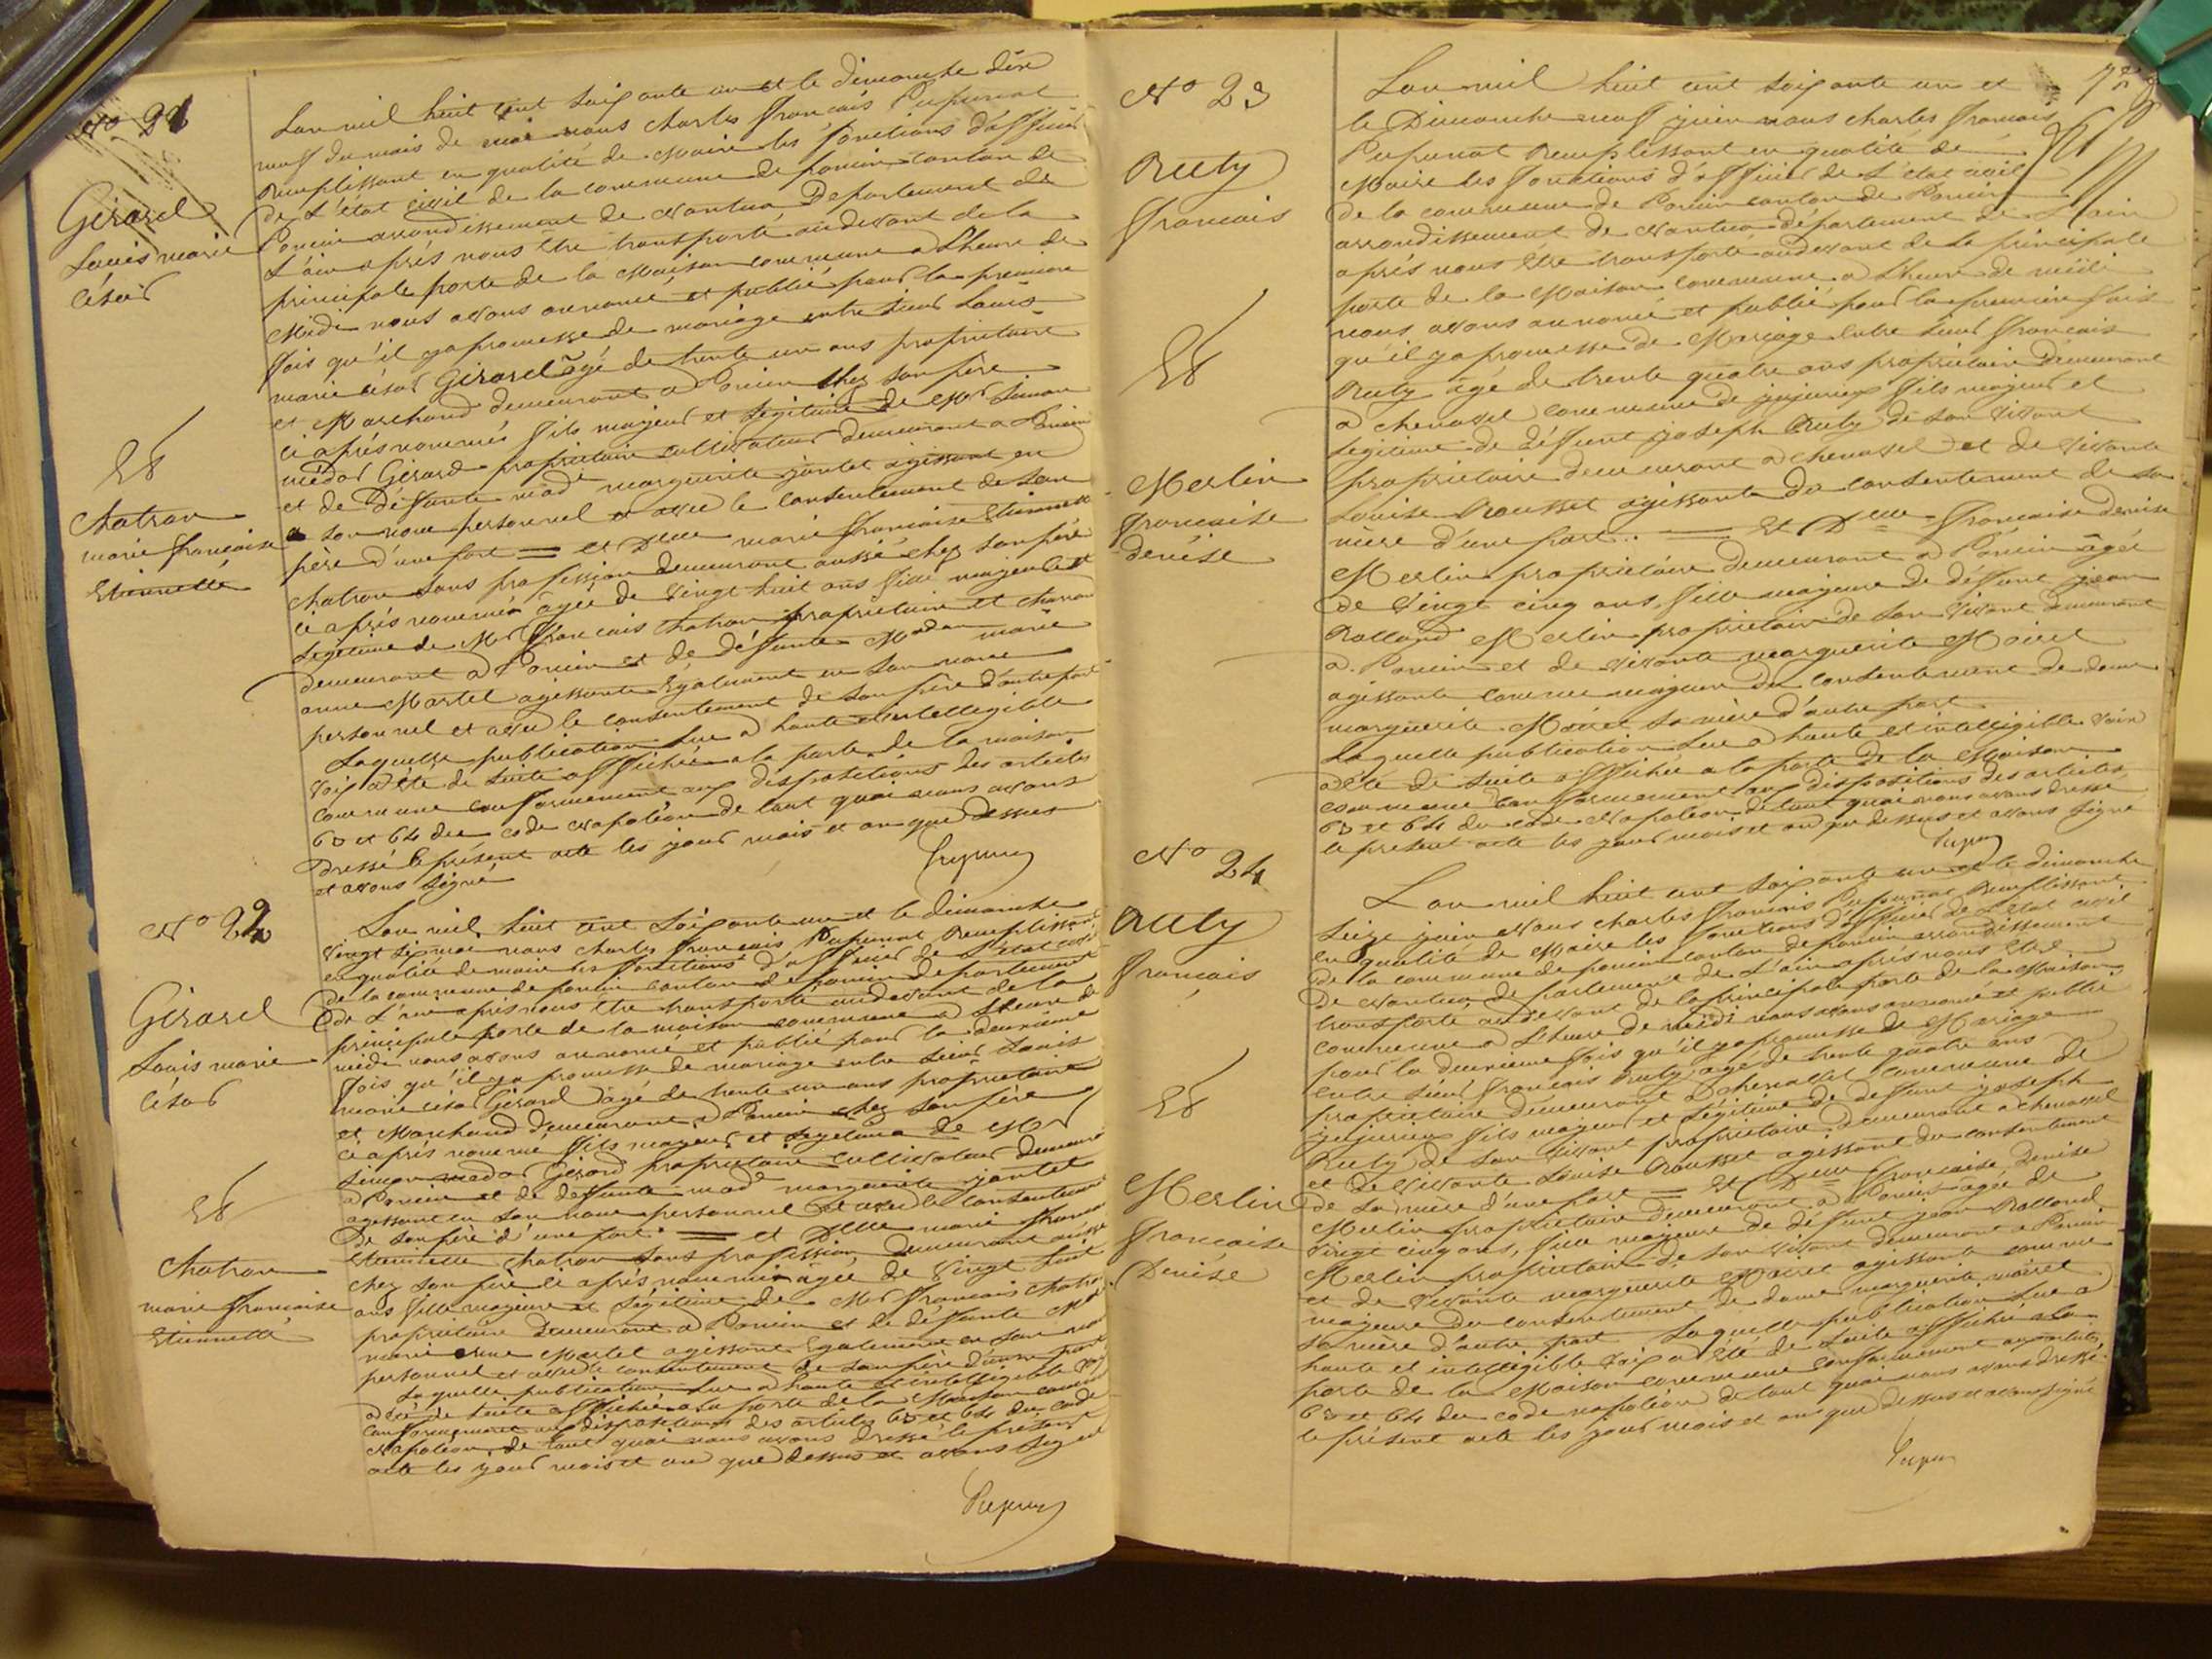 No 21
Girard
Louis marie
César
Et
Chatron
marie françoise
Etiennette
L'an mil huit cent soixante un et le dimanche dix
neuf du mois de mai nous charles françois Pupunat
Remplissant en qualité de Maire les fonctions d'officier
de L'état civil de la commune de poncin canton de
Poncin arrondissement de Nantua Departement de
L'ain après nous être transporté au devant de la
principale porte de la Maison commune a L'heure de
Midi nous avons annoncé et publié pour la premiere
fois qu'il y a promesse de mariage entre sieur Louis
marie césar Girard âgé de trente un ans propriétaire
et Marchand demeurant a Poncin chez son père
ci après nommés fils majeur et légitime de Mr Simon
médar Girard propriétaire cultivateur demeurant a Poncin
et de Défunte mad marguerite jantet agissant en
son nom personnel et avec le consentement de son
père d'une part = et Delle marie françoise Etiennette
chatron sans profession demeurant aussi chez son père
ci après nommée âgée de vingt huit ans fille majeure et
Légitime de Mr françois chatron propriétaire et charron
demeurant a Poncin et de défunte Madame marie
anne Martel agissante Egalement en son nom
personnel et avec le consentement de son père d'autre part
Laquelle publication Lue a haute et intelligible
voix a été de suite affichée a la porte de la maison
commune conformement aux dispositions des articles
63 et 64 du code Napoléon de tout quoi nous avons
dressé le présent acte les jour mois et an que dessus
et avons signé
No 22
Girard
Louis marie
César
Et
Chatron
marie françoise
Etiennette
L'an mil huit cent soixante un et le dimanche
vingt six mai nous charles françois Pupunat Remplissant
en qualité de maire les fonctions d'officier de L'état civil
de la commune de poncin canton de poncin departement
de L'ain après nous être transporté au devant de la
principale porte de la maison commune a L'heure de
midi nous avons annoncé et publié pour la deuxième
fois qu'il y a promesse de mariage entre sieur Louis
marie césar Girard âgé de trente un ans propriétaire
et Marchand demeurant a Poncin chez son père
ci après nommé fils majeur et Légitime de Mr
Simon medar Girard propriétaire cultivateur demeurant
a Poncin et de défunte mad marguerite jantet
agissant en son nom personnel et avec le consentement
de son père d'une part = et Delle marie françoise
Etiennette chatron sans profession demeurant aussi
chez son père ci après nommée âgée de vingt huit
ans fille majeure et Légitime de Mr françois chatron
propriétaire demeurant a Poncin et de défunte Mde
marie anne Martel agissant Egalement en son nom
personnel et avec le consentement de son père d'autre part
Laquelle publication Lue a haute et intelligible voix
a été de suite affichée a la porte de la Maison commune
conformement aux dispositions des articles 63 et 64 du code
Napoléon, de tout quoi nous avons dressé le présent
acte les jour mois et an que dessus et avons signé
No 23
Ruty
françois
Et
Merlin
françoise
denise
L'an mil huit cent soixante un et
le Dimanche neuf juin nous charles françois
Pupunat Remplissant en qualité de
Maire les fonctions d'officier de L'état civil
de la commune de Poncin canton de Poncin
arrondissement de Nantua département de L'ain
après nous être transporté au devant de la principale
porte de la Maison commune a L'heure de midi
nous avons annoncé et publié pour la première fois
qu'il y a promesse de Mariage entre sieur françois
Ruty âgé de trente quatre ans propriétaire demeurant
a chenavel commune de jujurieux fils majeur et
légitime de défunt joseph Ruty de son vivant
propriétaire demeurant a chenavel et de vivante
Louise Rousset agissante du consentement de sa
mère d'une part. = Et Delle françoise denise
Merlin propriétaire demeurant a Poncin âgée
de vingt cinq ans, fille majeure de défunt jean
Rolland Merlin propriétaire de son vivant demeurant
a Poncin et de vivante marguerite Moiret
agissante comme majeure du consentement de dame
marguerite Moiret sa mère d'autre part
Laquelle publication Lue a haute et intelligible voix
a été de suite affichée a la porte de la Maison
commune conformement aux dispositions des articles
63 et 64 du code Napoléon, de tout quoi nous avons dressé
le présent acte les jour mois et an que dessus et avons signé
No 24
Ruty
françois
Et
Merlin
françoise
Denise
L'an mil huit cent soixante un et le dimanche
seize juin Nous charles françois Pupunat Remplissant
en qualité de Maire les fonctions d'officier de L'état civil
de la commune de poncin canton de poncin arrondissement
de Nantua departement de L'ain après nous être
transporté au devant de la principale porte de la Maison
commune a L'heure de midi nous avons annoncé et publié
pour la deuxième fois qu'il y a promesse de Mariage
entre sieur françois Ruty, âgé de trente quatre ans
propriétaire demeurant a chenavel commune de
jujurieux fils majeur et Légitime de defunt joseph
Ruty de son vivant propriétaire demeurant a chenavel
et de vivante Louise Rousset agissant du consentement
de sa mère d'une part = Et Delle françoise Denise
Merlin propriétaire demeurant a Poncin âgée de
vingt cinq ans, fille majeure de défunt jean Rolland
Merlin propriétaire de son vivant demeurant a Poncin
et de vivante marguerite Moiret agissante comme
majeure du consentement de dame marguerite moiret
sa mère d'autre part Laquelle publication Lue a
haute et intelligible voix a été de suite affichée a la
porte de la Maison commune conformement aux articles
63 et 64 du code napoléon de tout quoi nous avons dressé
le présent acte les jour mois et an que dessus et avons signé